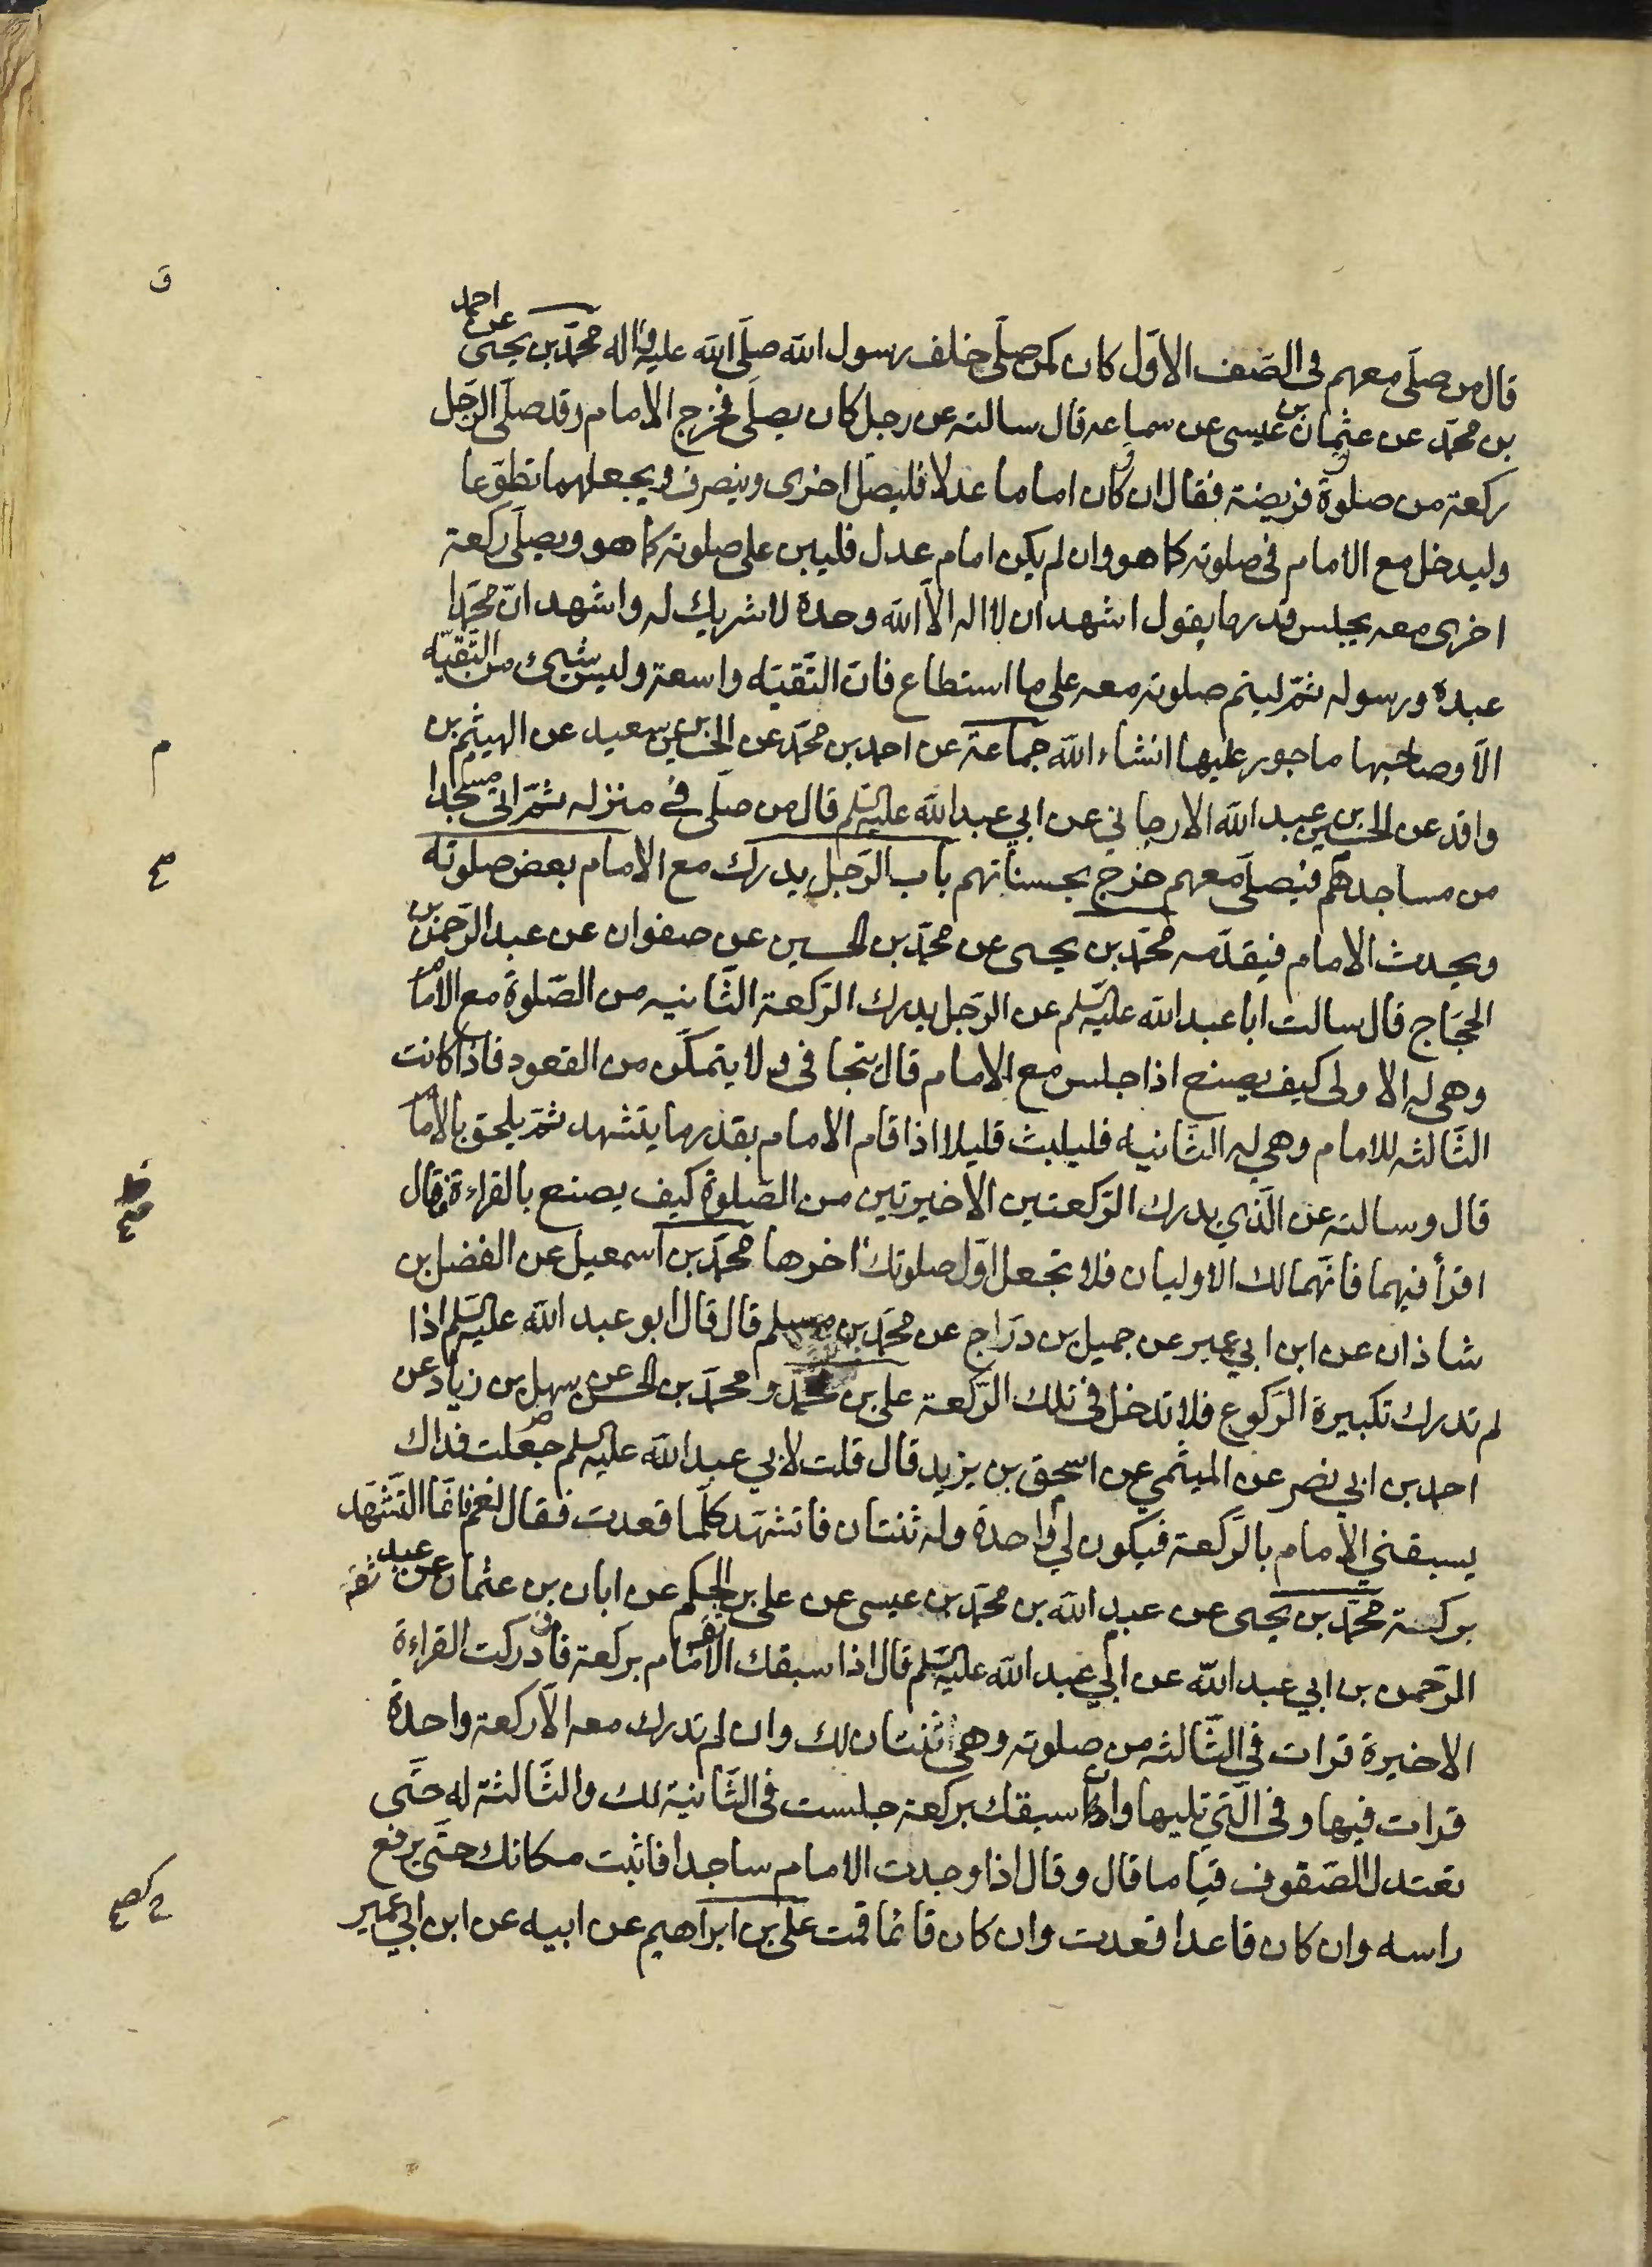 قال من صلّى معهم في الصّف الاوّل كان كمن صلّى خلف رسول الله صلّى الله عليه واله محمّد بن يحيى عن احمد
بن محمّد عن عثمان بن عيسى عن سماعه قال سالته عن رجل كان يصلّى فخرج الامام وقد صلّى الرّجل
ركعة من صلوة فريضة فقال ان كان اماما عدلا فليصلّ اخرى وينصرف ويجعلهما تطوّعا
وليدخل مع الامام في صلوته كما هو وان لم يكن امام عدل فليبن على صلوته كما هو ويصلّى ركعة
اخرى معه يجلس قدر ما يقول اشهد ان لا اله الاّ الله وحده لا شريك له واشهد انّ محمّدا
عبده ورسوله ثمّ ليتم صلوته معه على ما استطاع فانّ التّقيّه واسعة وليس شيئ من التّقيّه
الاّ وصاحبها ماجور عليها انشاء الله جماعة عن احمد بن محمّد عن الحسين بن سعيد عن الهيثم بن
واقد عن الحسين بن عبد الله الارجاني عن ابي عبد الله عليه السّلم قال من صلّى في منزله ثمّ اتى مسجدا
من مساجدهم فيصلّى معهم خرج بحسناتهم باب الرّجل يدرك مع الامام بعض صلوته
ويحدث الامام فيقدّمه محمّد بن يحيى عن محمّد بن الحسين عن صفوان عن عبد الرّحمن بن
الحجّاج قال سالت ابا عبد الله عليه السّلم عن الرّجل يدرك الرّكعة الثّانيه من الصّلوة مع الامام
وهي له الاولى كيف يصنع اذا جلس مع الامام قال يتجافى ولا يتمكّن من القعود فاذا كانت
الثّالثه للامام وهي له الثّانيه فليلبث قليلا اذا قام الامام بقدر ما يتشهد ثمّ يلحق بالامام
قال وسالته عن الّذي يدرك الرّكعتين الاخيرتين من الصّلوة كيف يصنع بالقراءة فقال
اقرأ فيهما فانّهما لك الاوليان فلا تجعل اوّل صلوتك اخرها محمّد بن اسمعيل عن الفضل بن
شاذان عن ابن ابي عمير عن جميل بن درّاج عن محمّد بن مسلم قال قال ابو عبد الله عليه السّلم اذا
لم تدرك تكبيرة الرّكوع فلا تدخل في تلك الرّكعة على بن محمّد و محمّد بن الحسن عن سهل بن زياد عن
احمد بن ابي نصر عن الميثمي عن اسحق بن يزيد قال قلت لابي عبد الله عليه السلم جعلت فداك
يسبقني الامام بالرّكعة فيكون لي واحدة وله ثنتان فاتشهّد كلّما قعدت فقال نعم فانّما التّشهّد
بركة محمّد بن يحيى عن عبد الله بن محمّد بن عيسى عن على بن الحكم عن ابان بن عثمان عن عبد
الرّحمن بن ابي عبد الله عن ابي عبد الله عليه السّلم قال اذا سبقك الامام بركعة فادركت القراءة
الاخيرة قرات في الثّالثه من صلوته وهي ثنتان لك وان لم تدرك معه الاّ ركعة واحدة
قرات فيها و في الّتي تليها وان سبقك بركعة جلست في الثّانية لك والثّالثة له حتّى
تعتدل الصّفوف قياما قال وقال اذا وجدت الامام ساجدا فاثبت مكانك حتّى يرفع
راسه وان كان قاعدا قعدت وان كان قائما قمت على بن ابراهيم عن ابيه عن ابن ابي عمير